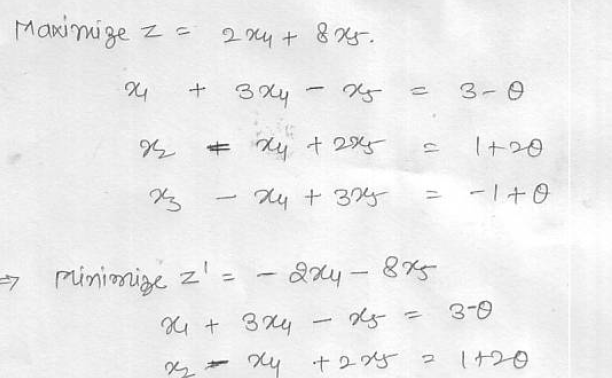 Maximize z = 2x4 + 8x5.
x1 + 3x4 - x5 = 3-θ
x2 - x4 + 2x5 = 1+2θ
x3 - x4 + 3x5 = -1+θ
⇒ Minimize z' = -2x4 - 8x5
x1 + 3x4 - x5 = 3-θ
x2 - x4 + 2x5 = 1+2θ